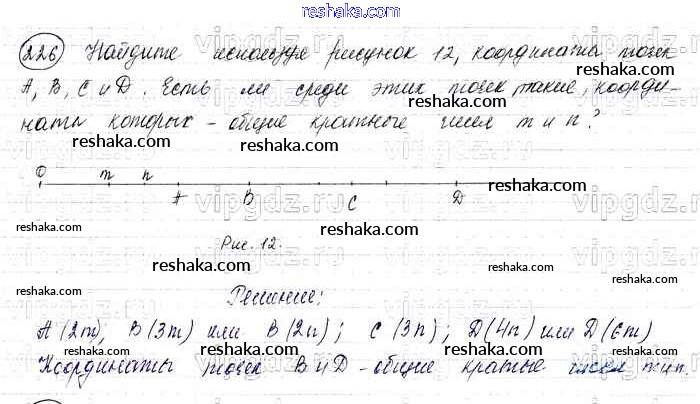 reshaka.com
226 Найдите используя рисунок 12, координаты точек
A, B, C и D. Есть ли среди этих точек такие, коорди-
наты которых - общие кратные чисел m и n?
reshaka.com reshaka.com reshaka.com
0 m n
A B C D
reshaka.com reshaka.com reshaka.com reshaka.com
Рис. 12.
reshaka.com reshaka.com reshaka.com
Решение:
reshaka.com reshaka.com
A(2m), B(3m) или B(2n); C(3n); D(4n) или D(6m)
Координаты точек B и D - общие кратные чисел m и n.
reshaka.com reshaka.com reshaka.com